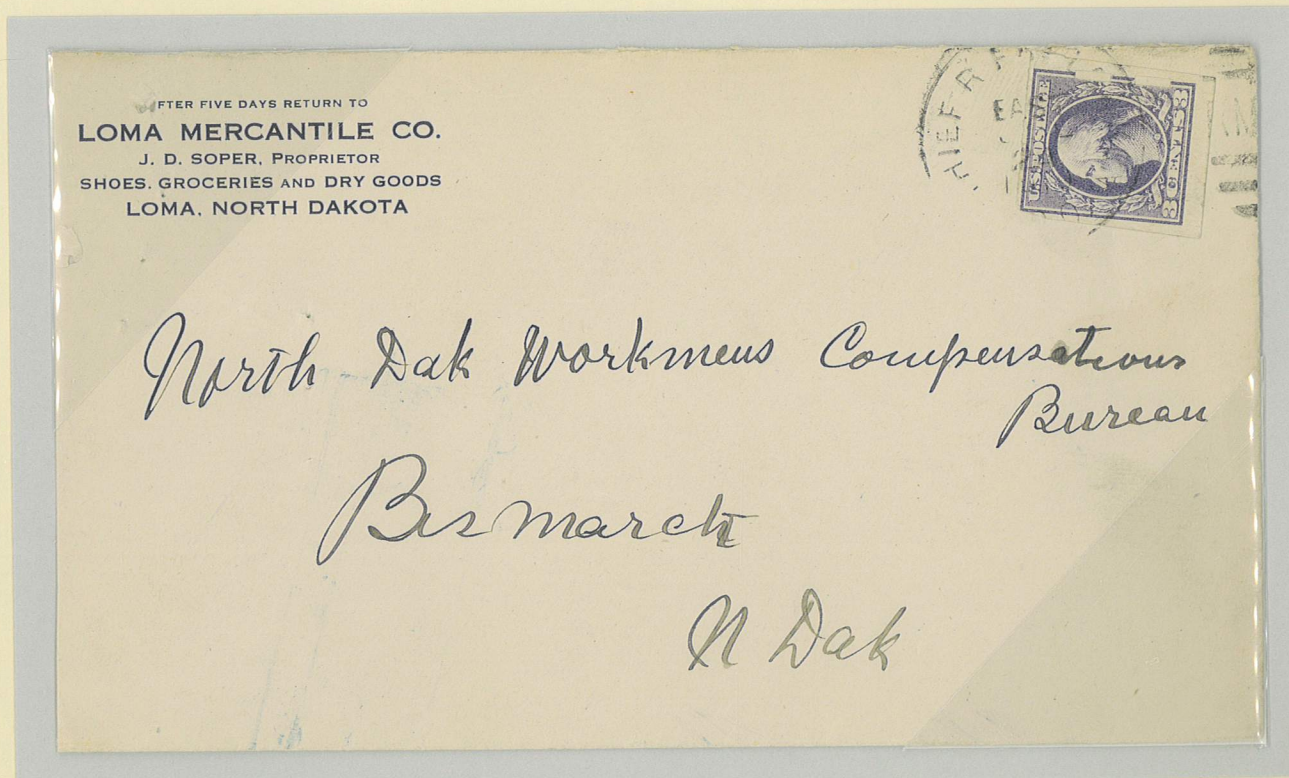 FTER FIVE DAYS RETURN TO
LOMA MERCANTILE CO.
J. D. SOPER, PROPRIETOR
SHOES. GROCERIES AND DRY GOODS
LOMA, NORTH DAKOTA
U.S. POSTAGE
3 CENTS 3
North Dak Workmens Compensations
Bureau
Bismarck
N Dak